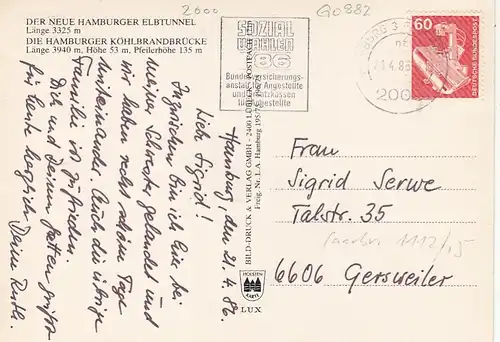 DER NEUE HAMBURGER ELBTUNNEL
Länge 3325 m
DIE HAMBURGER KÖHLBRANDBRÜCKE
Länge 3940 m, Höhe 53 m, Pfeilerhöhe 135 m
2000
G0882
SOZIAL
WAHLEN
86
Bundesversicherungs-
anstalt für Angestellte
und Ersatzkassen
für Angestellte
BURG 3
.4.86
200
60
DEUTSCHE BUNDESPOST
Hamburg, den 21.4.86.
Liebe Sigrid!
Inzwischen bin ich hier bei
meiner Schwester gelandet und
wir haben recht schöne Tage
miteinander. Auch die übrige
Familie ist zufrieden.
Dich und Deinen Gatten grüßt
für heute herzlich Deine Ruth.
BILD-DRUCK & VERLAG GMBH - 2400 LÜBECK - POSTFACH
Freig. Nr. L.A. Hamburg 195/78
HOLSTEN
KARTE
LUX
Frau
Sigrid Serwe
Talstr. 35
6606 Gersweiler